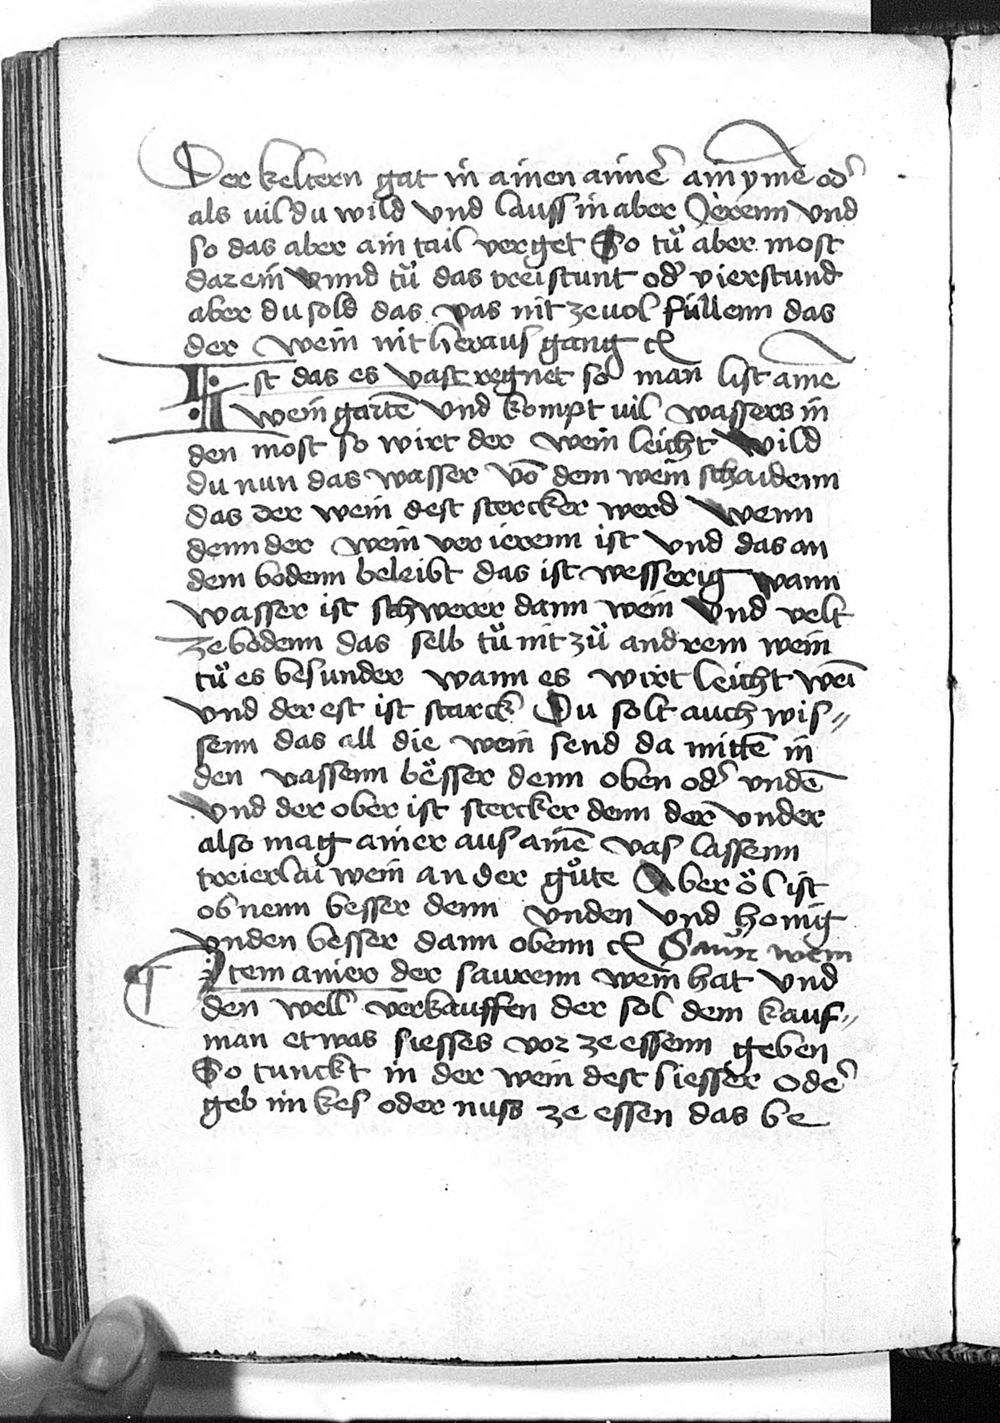 Der keltern gat in ainen aimeͬ ain yme odͬ
als vil du wild vnd lauss in aber Jerenn vnd
so das aber ain tail verget So tuͦ aber most
dar ein vnnd tuͦ das dreistunt odͬ vierstund
aber du sold das vas nit ze uol füllenn das
der wein nit heraus gang ꝛc
Ist das es vast regnet so man list ame
wein gartē vnd kompt uil wassers in
den most so wirt der wein leicht wild
du nun das wasser võ dem wein schaidenn
das der wein dest stercker werd wenn
denn der wein ver ierenn ist vnd das an
dem bodenn beleibt das ist wesserig wann
wasser ist schwerer dann wein vnd velt
ze bodenn das selb tuͦ nit zuͦ andrem wein
tuͦ es besunder wann es wirt leicht wei
vnd der est ist starck Du solt auch wis⸗
senn das all die wein send da mittē in
den vassenn bësser denn oben odͬ vndē
vnd der ober ist stercker denn der vnder
also mag ainer aus ainē vas lassenn
treierlai wein an der guͦte Aber öl ist
obnenn besser denn vnden vnd honig
vnden besser dann obenn ꝛc Saur wein
Item ainer der saurenn wein hat vnd
den well verkauffen der sol dem kauf⸗
man etwas siesses vor ze essenn geben
So tunckt in der wein dest siesser odeͬ
geb im kes oder nuss ze essen das be